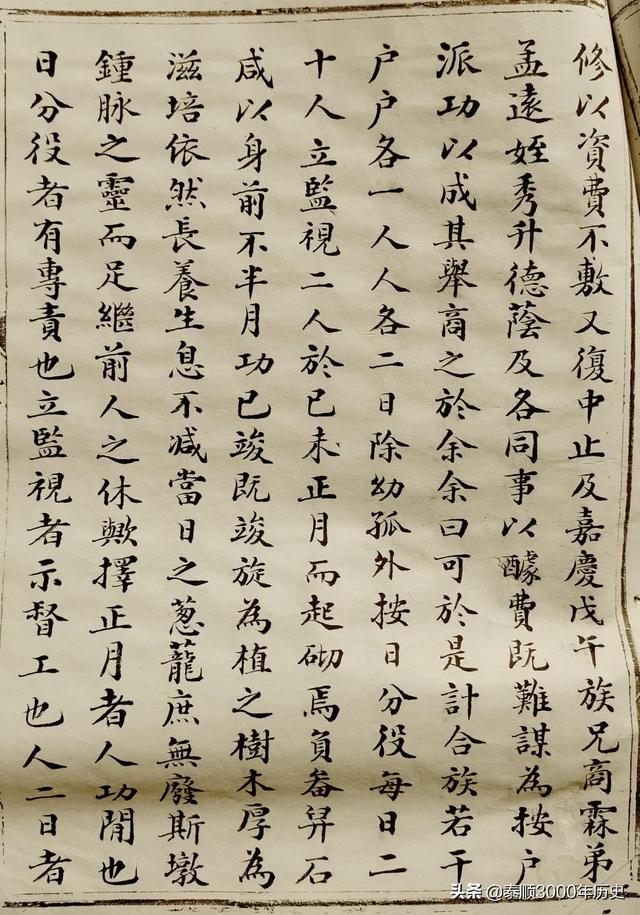 修以資費不敷又復中止及嘉慶戊午族兄商霖弟
孟遠姪秀升德蔭及各同事以醵費既難謀為按户
派功以成其舉商之於余余曰可於是計合族若干
户户各一人人各二日除幼孤外按日分役每日二
十人立監視二人於已未正月而起砌焉負畚舁石
咸以身前不半月功已竣既竣旋為植之樹木厚為
滋培依然長養生息不减當日之葱蘢庶無廢斯墩
鍾脉之靈而足繼前人之休歟擇正月者人功閒也
日分役者有專責也立監視者示督工也人二日者
头条@泰顺3000年历史